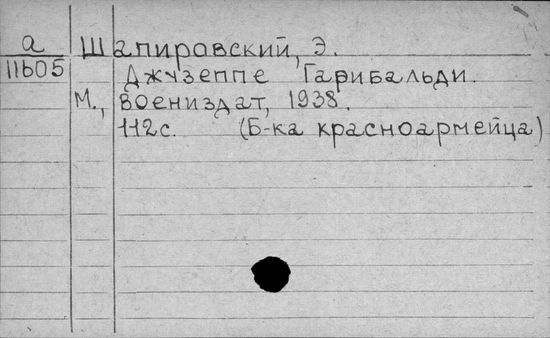 а Шапировский, Э.
11605 Джузеппе Гарибальди.
М., Воениздат, 1938.
112с. (Б-ка красноармейца)